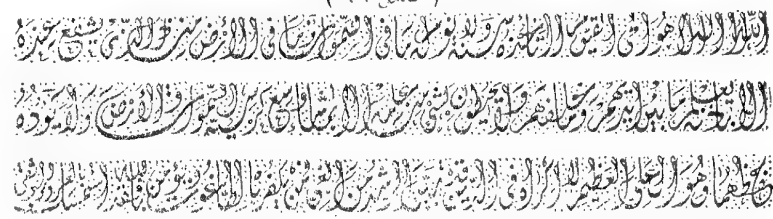 الله لا اله الا هو الحي القيوم لا تاخذه سنة ولا نوم له ما في السموات وما في الارض من ذا الذي يشفع عنده
الا باذنه يعلم ما بين ايديهم وما خلفهم ولا يحيطون بشئ من علمه الا بما شاء وسع كرسيه السموات والارض ولا يؤده
حفظهما وهو العلي العظيم لا اكراه في الدين قد تبين الرشد من الغي فمن يكفر بالطاغوت ويؤمن بالله فقد استمسك بالعروة الوثقى